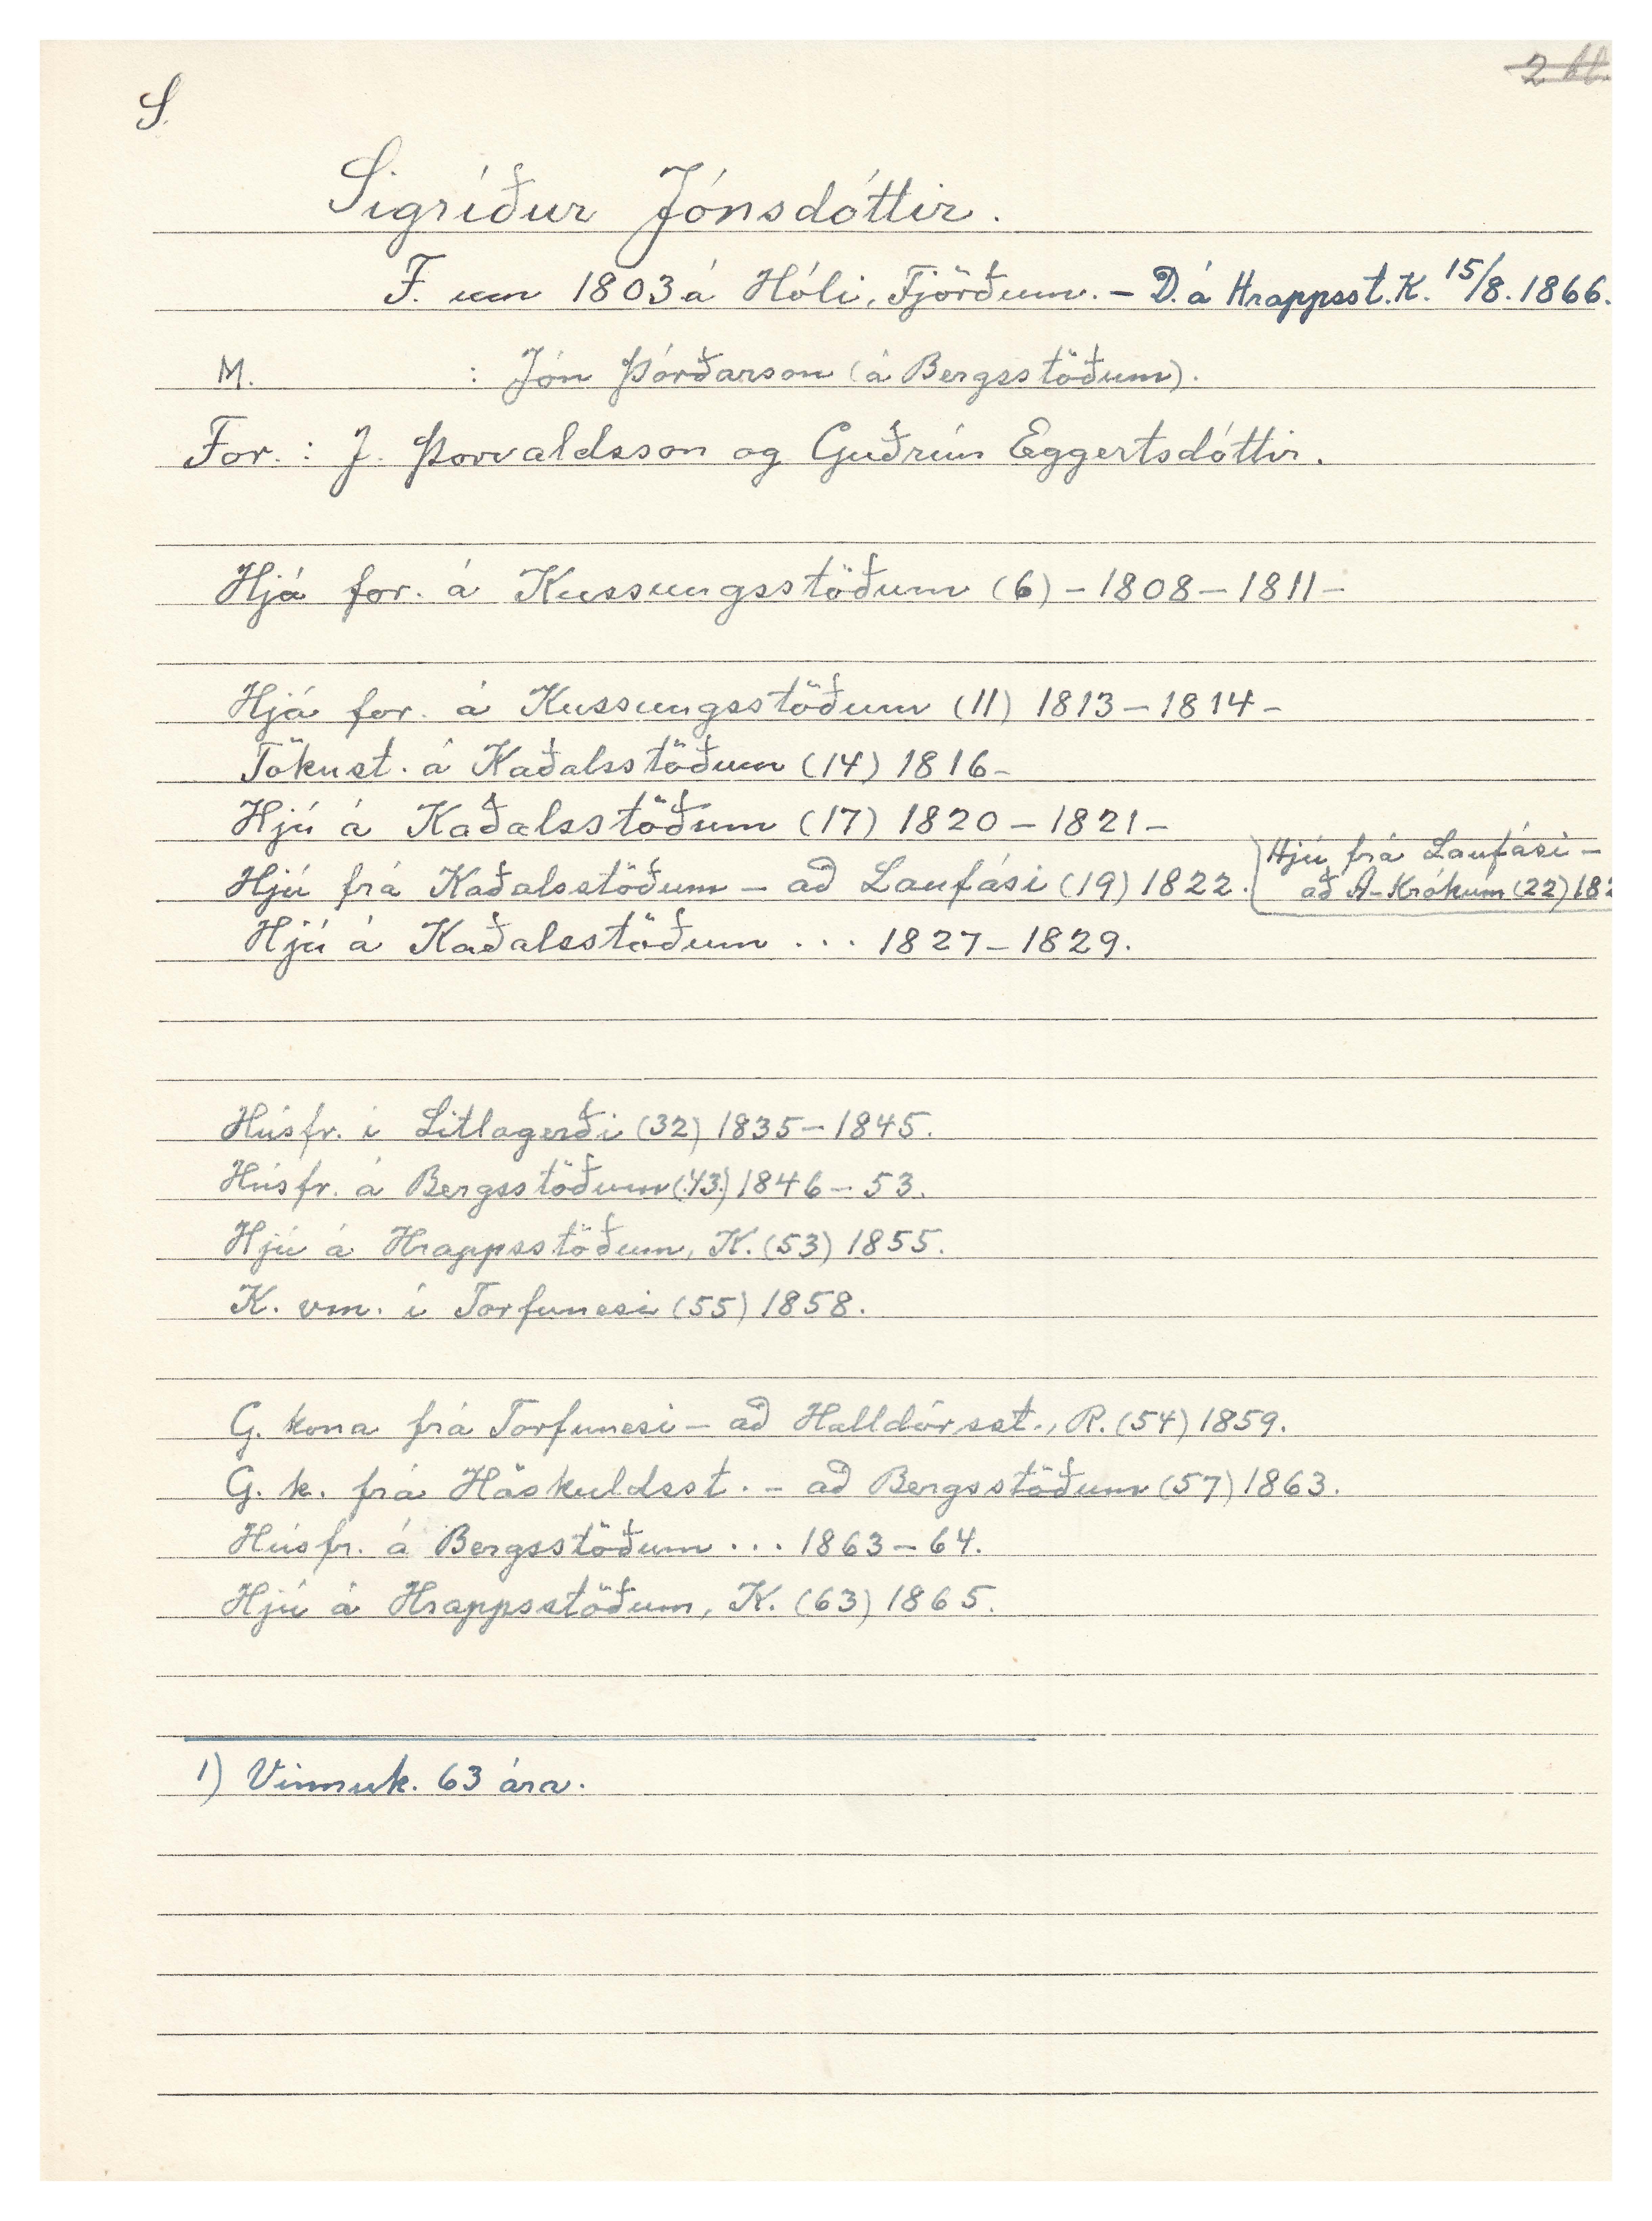 2 bl.
S.
Sigríður Jónsdóttir.
F. um 1803 á Hóli, Fjörðum. – D. á Hrappsst. K. 15/8. 1866.
M. : Jón Þórðarson (á Bergsstöðum).
For. : J. Þorvaldsson og Guðrún Eggertsdóttir.
Hjá for. á Kussungsstöðum (6) – 1808 – 1811 –
Hjá for. á Kussungsstöðum (11) 1813 – 1814 –
Tökust. á Kaðalsstöðum (14) 1816 –
Hjú á Kaðalsstöðum (17) 1820 – 1821 –
Hjú frá Kaðalsstöðum – að Laufási (19) 1822.
Hjú frá Laufási –
að A-Krókum (22) 182
Hjú á Kaðalsstöðum ... 1827 – 1829.
Húsfr. í Litlagerði (32) 1835 – 1845.
Húsfr. á Bergsstöðum (43) 1846 – 53.
Hjú á Hrappsstöðum, K. (53) 1855.
K. vm. í Torfunesi (55) 1858.
G. kona frá Torfunesi – að Halldórsst., R. (54) 1859.
G. k. frá Höskuldsst. – að Bergsstöðum (57) 1863.
Húsfr. á Bergsstöðum ... 1863 – 64.
Hjú á Hrappsstöðum, K. (63) 1865.
1) Vinnuk. 63 ára.